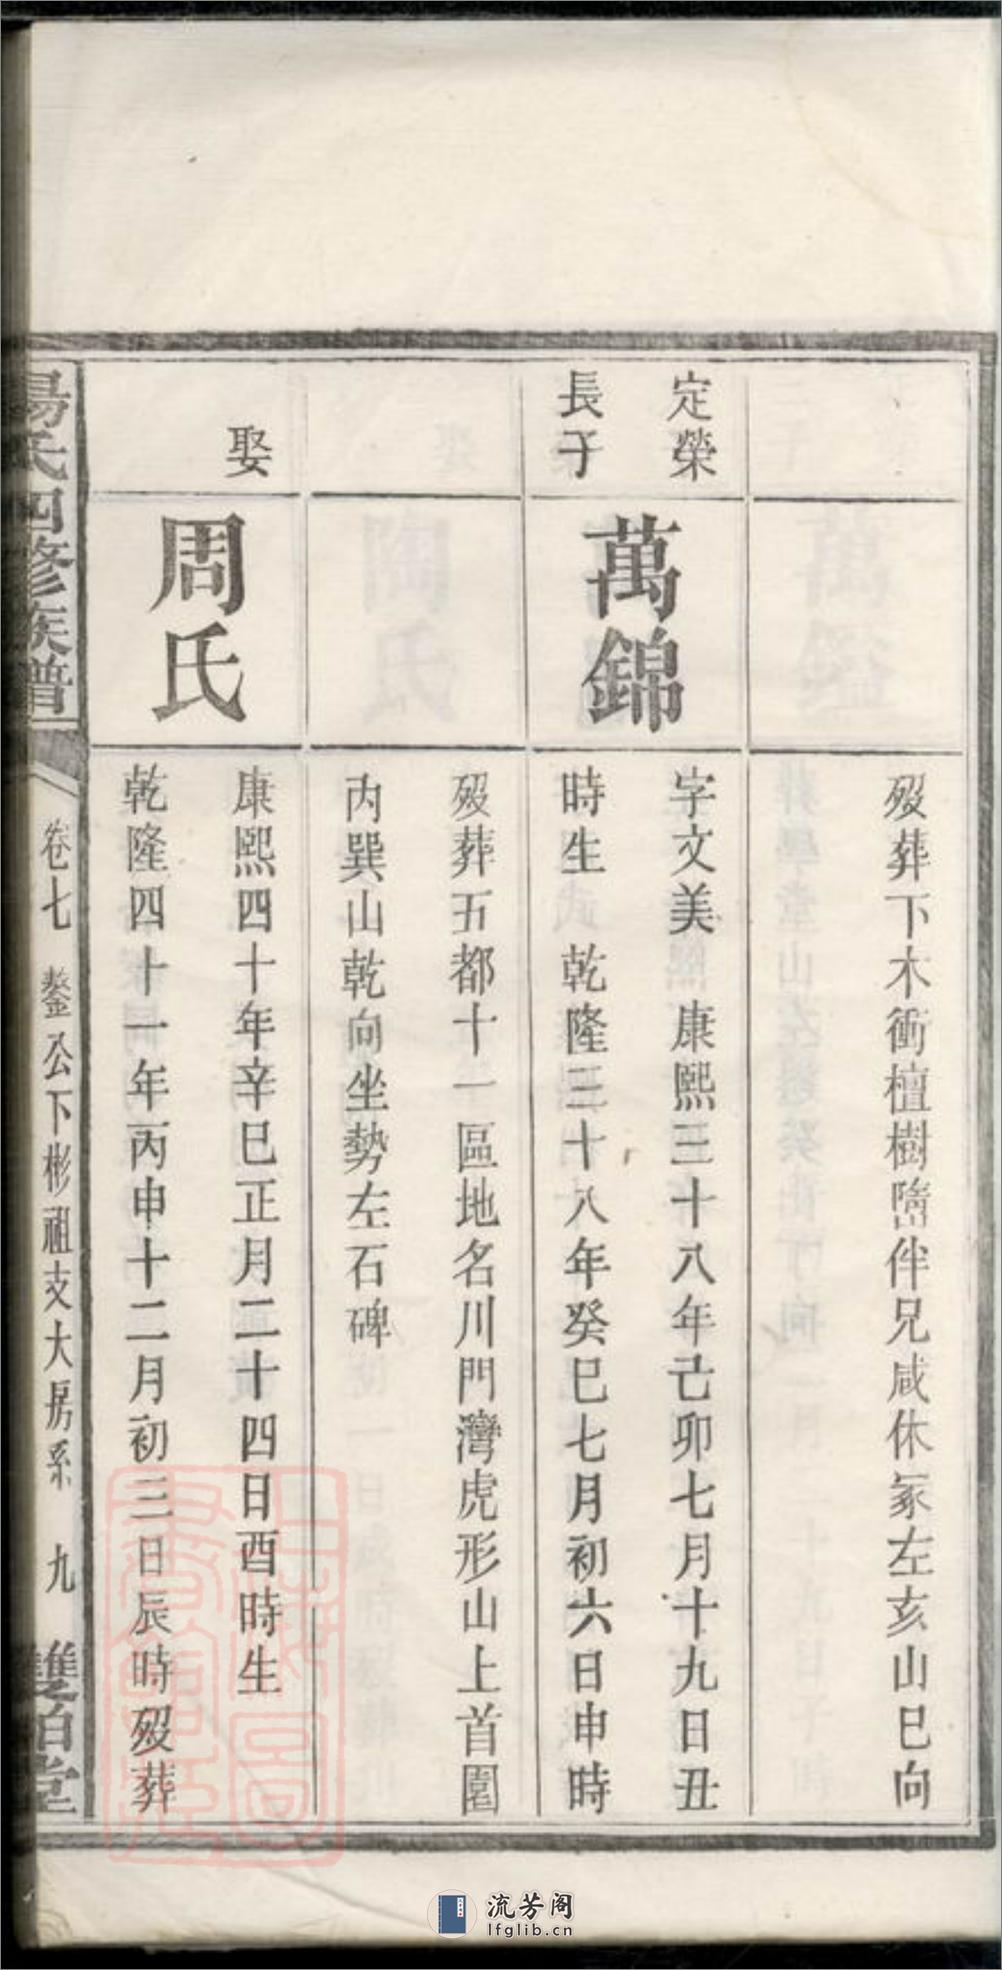 歿葬下木衝檀樹嶞伴兄咸休冢左亥山巳向
定榮
長子
萬錦
字文美　康熙三十八年己卯七月十九日丑
時生　乾隆三十八年癸巳七月初六日申時
歿葬五都十一區地名川門灣虎形山上首園
內巽山乾向坐勢左石碑
娶
周氏
康熙四十年辛巳正月二十四日酉時生
乾隆四十一年丙申十二月初三日辰時歿葬
氏四修族譜
卷七　鏊公下彬祖支大房系　九
雙柏堂
流芳阁
lfglib.cn